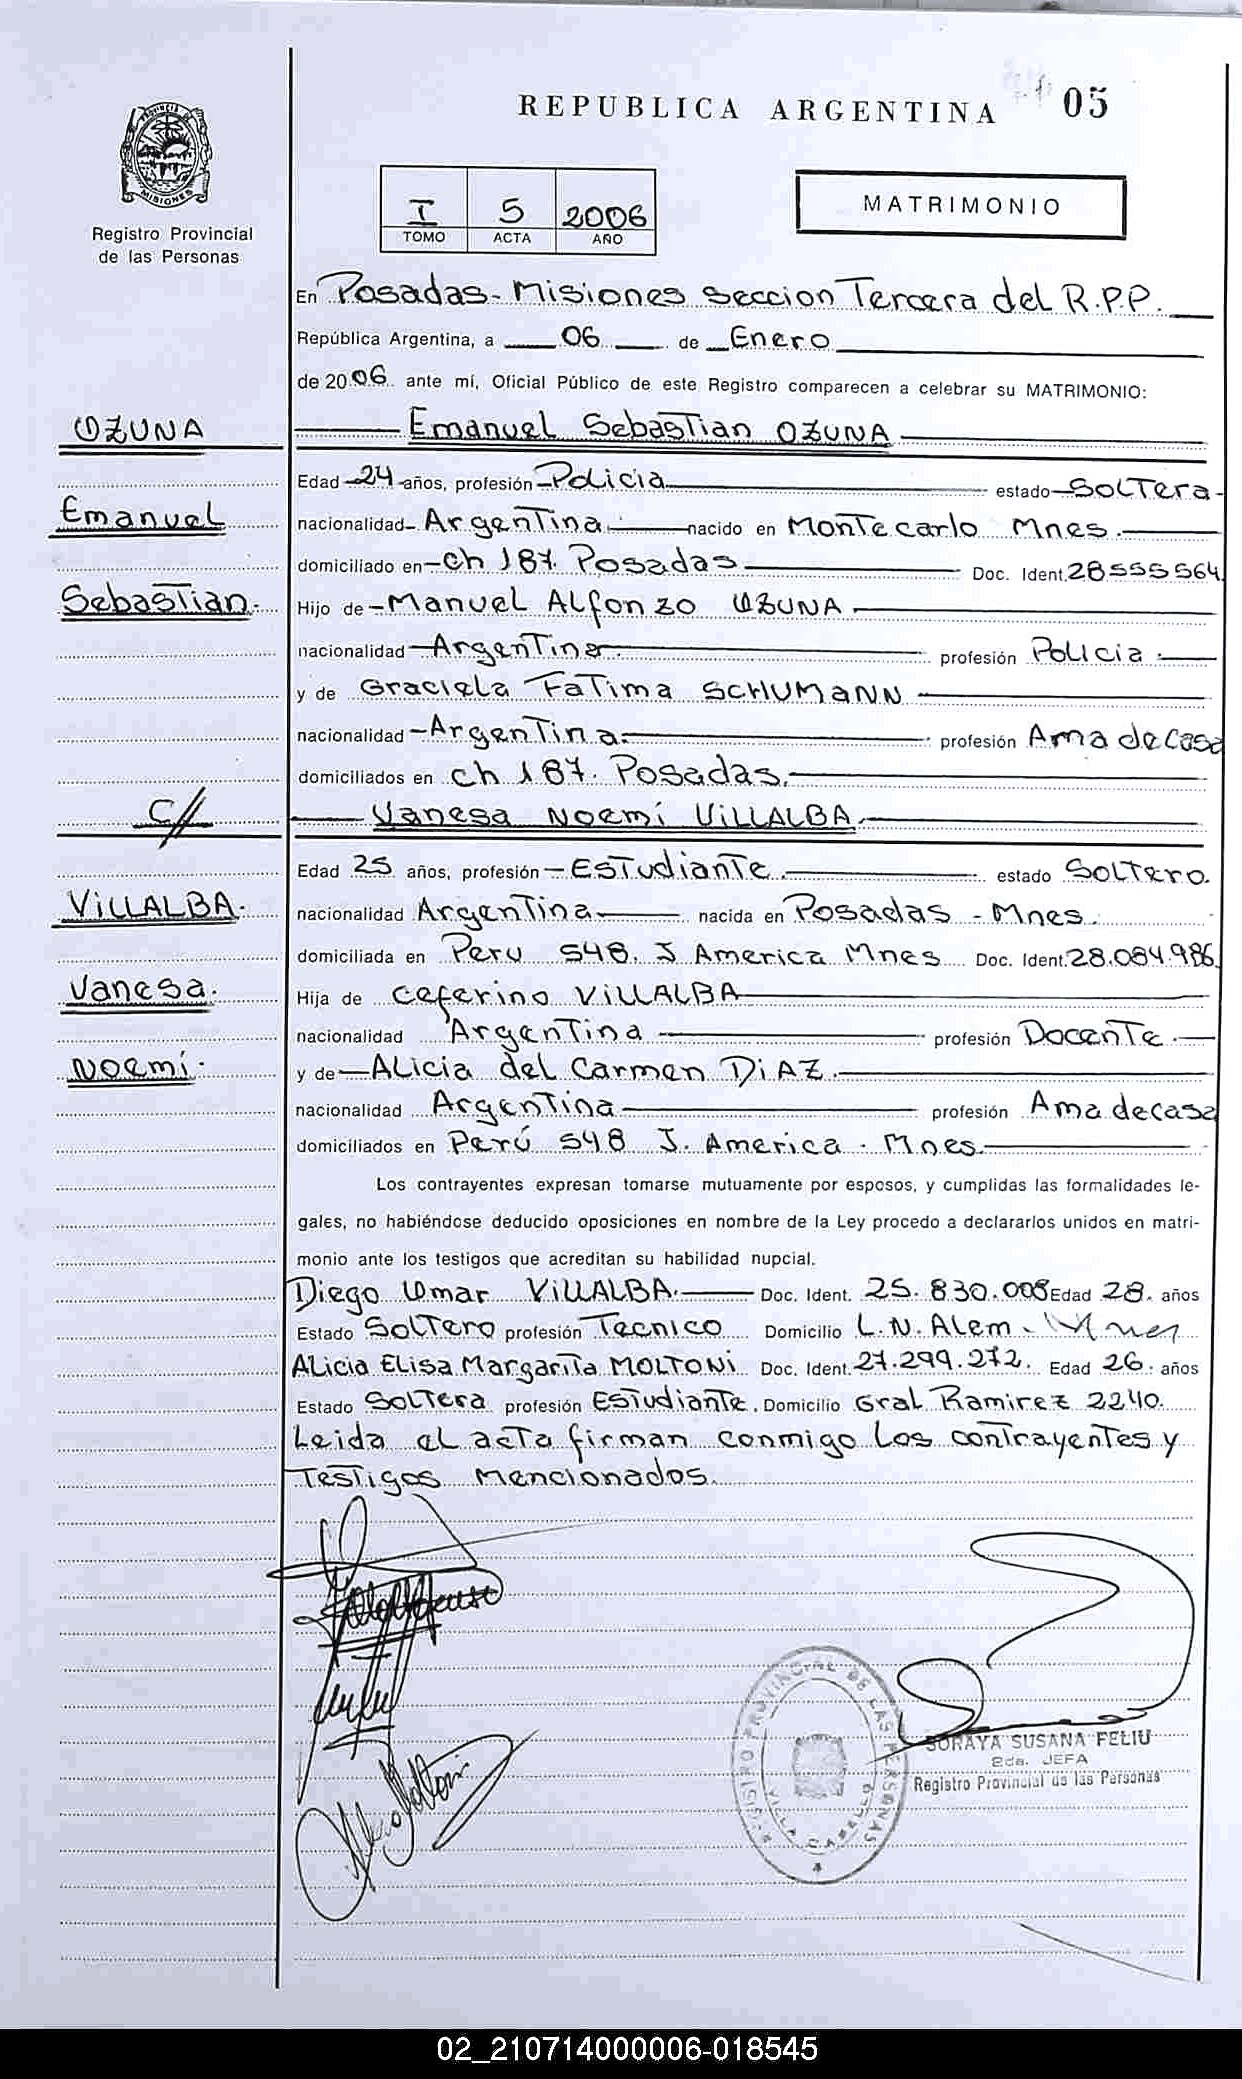 REPUBLICA ARGENTINA 05
PROVINCIA DE MISIONES
Registro Provincial
de las Personas
I 5 2006
TOMO ACTA AÑO
MATRIMONIO
En Posadas - Misiones Seccion Tercera del R.P.P.
República Argentina, a 06 de Enero
de 2006 ante mí, Oficial Público de este Registro comparecen a celebrar su MATRIMONIO:
OZUNA Emanuel Sebastian OZUNA
Edad 24 años, profesión Policia estado Soltera
Emanuel nacionalidad Argentina nacido en Montecarlo Mnes.
domiciliado en ch 187. Posadas Doc. Ident. 28555564
Sebastian. Hijo de Manuel Alfonzo OZUNA
nacionalidad Argentina. profesión Policia.
y de Graciela Fatima SCHUMANN
nacionalidad Argentina. profesión Ama de casa
domiciliados en ch 187. Posadas.
C// Vanesa Noemí VILLALBA.
Edad 25 años, profesión Estudiante. estado Soltero.
VILLALBA. nacionalidad Argentina nacida en Posadas - Mnes.
domiciliada en Peru 548. J America Mnes Doc. Ident. 28.084.986
Vanesa. Hija de Ceferino VILLALBA
nacionalidad Argentina profesión Docente.
Noemí. y de Alicia del Carmen DIAZ.
nacionalidad Argentina profesión Ama de casa
domiciliados en Perú 548 J. America. Mnes.
Los contrayentes expresan tomarse mutuamente por esposos, y cumplidas las formalidades le-
gales, no habiéndose deducido oposiciones en nombre de la Ley procedo a declararlos unidos en matri-
monio ante los testigos que acreditan su habilidad nupcial.
Diego Omar VILLALBA. Doc. Ident. 25.830.008 Edad 28. años
Estado Soltero profesión Tecnico Domicilio L.N. Alem. Mnes
Alicia Elisa Margarita MOLTONI Doc. Ident. 27.299.272. Edad 26. años
Estado Soltera profesión Estudiante. Domicilio Gral Ramirez 2240.
Leida el acta firman conmigo los contrayentes y
Testigos mencionados.
REGISTRO PROVINCIAL DE LAS PERSONAS
VILLA CABELLO
SORAYA SUSANA FELIU
2da. JEFA
Registro Provincial de las Personas
02_210714000006-018545